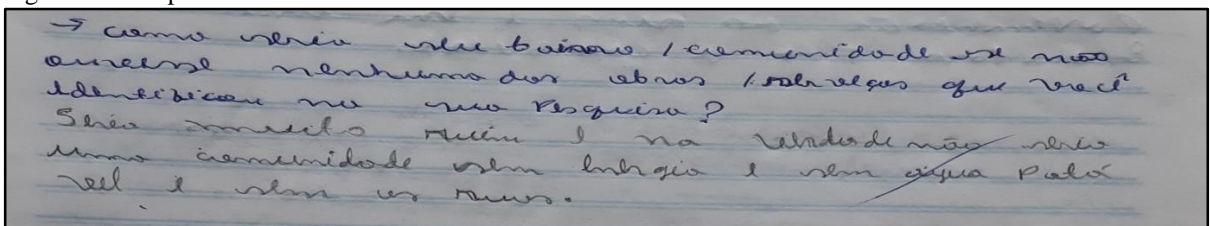 → como seria seu bairro / comunidade se não
ouvesse nenhuma das obras / sobre algos que você
identificou na sua pesquisa?
Seria muito ruim e na verdade não seria
uma comunidade sem energia e sem água Potá
vel e sem as ruas.